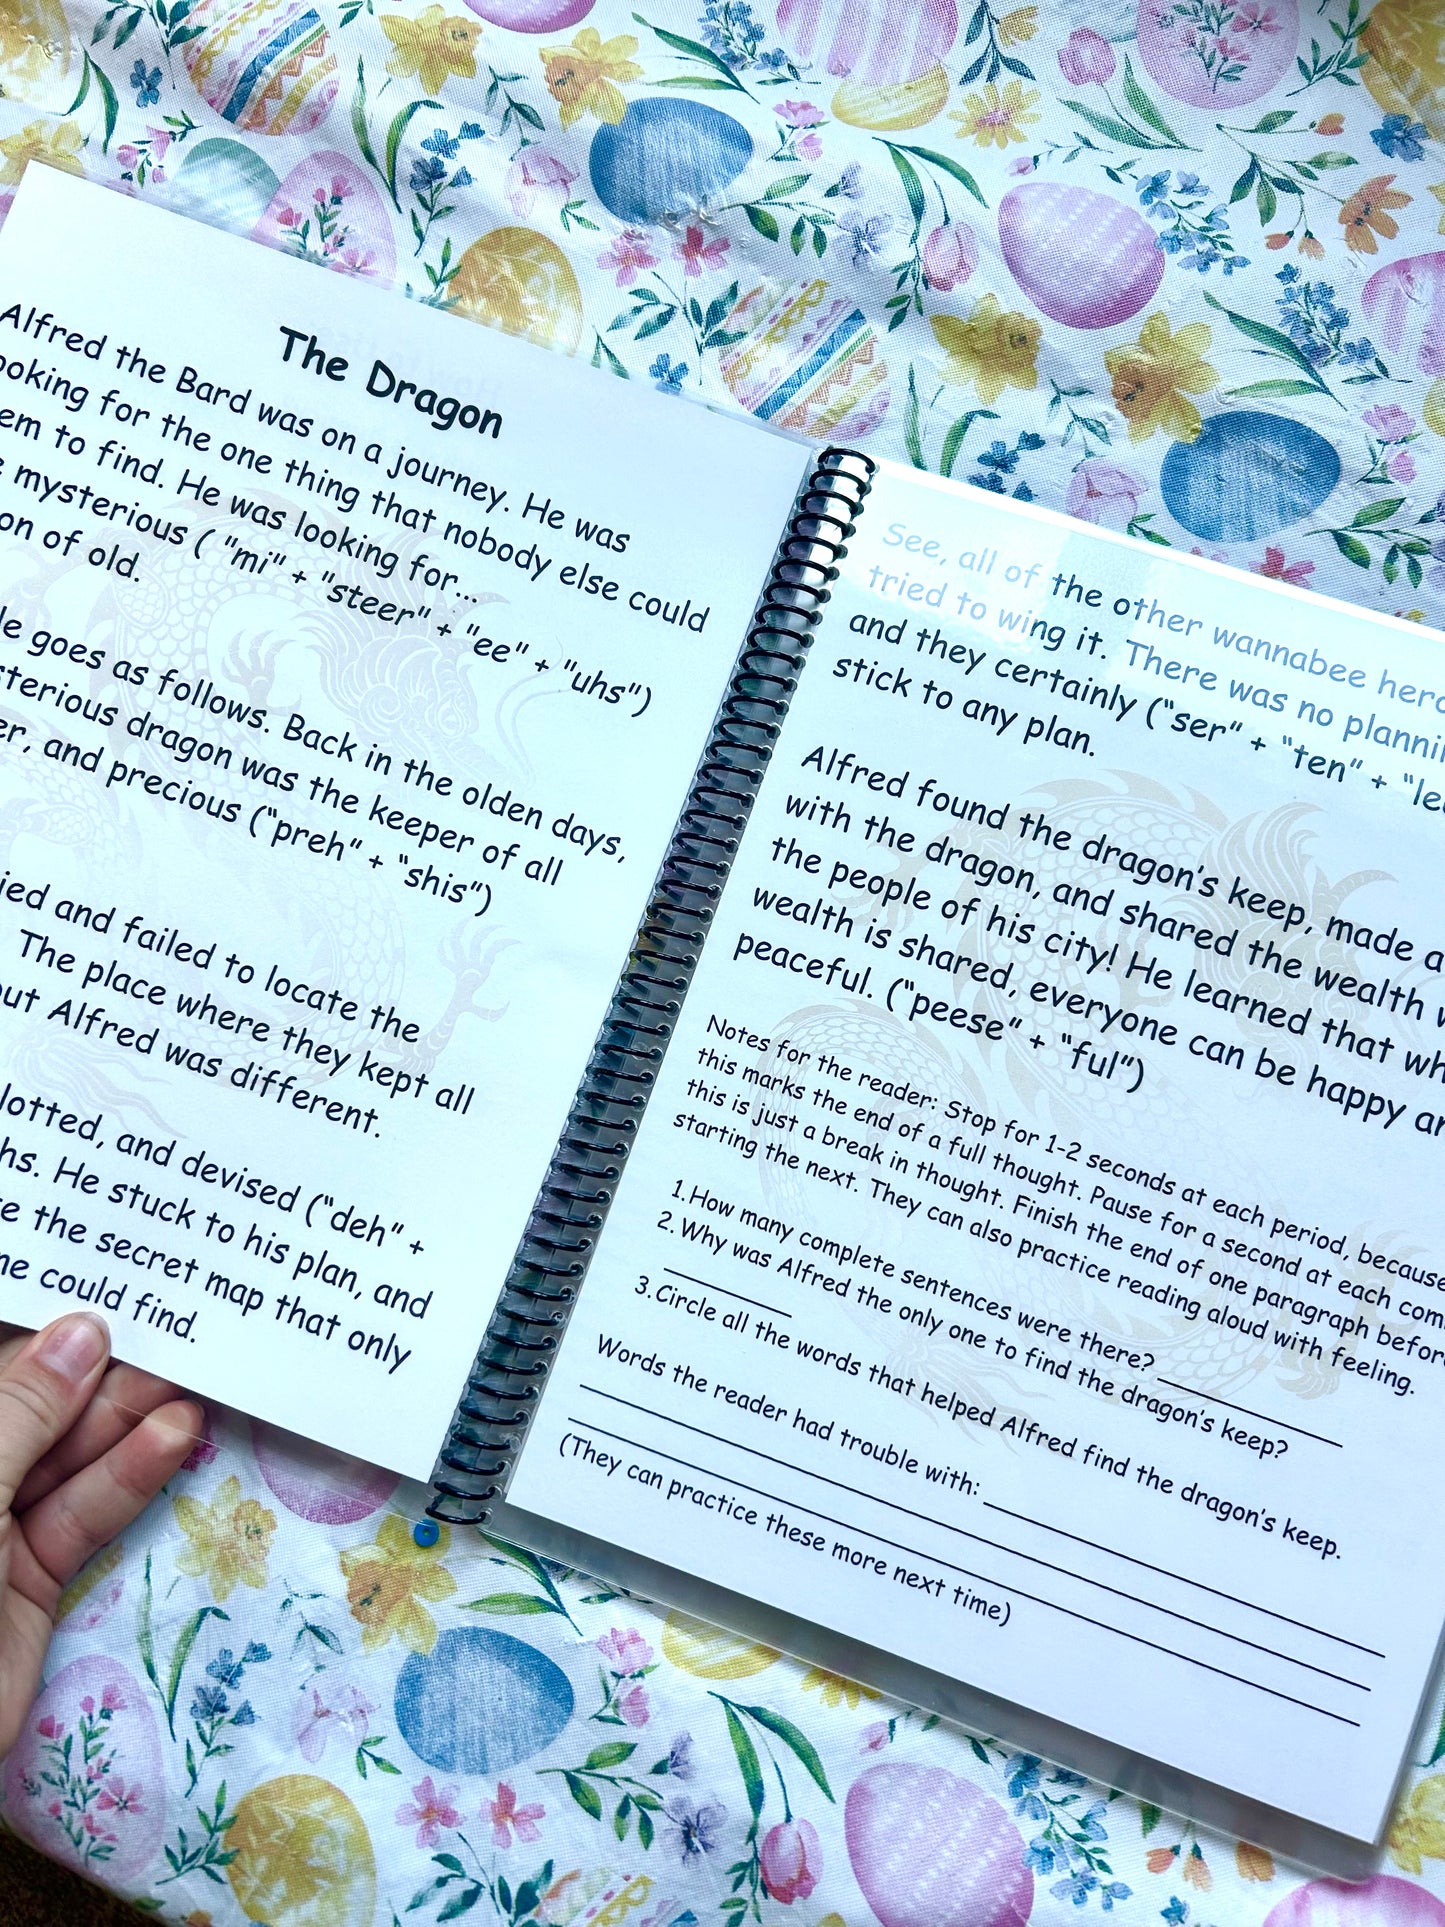 The Dragon
Alfred the Bard was on a journey. He was
ooking for the one thing that nobody else could
em to find. He was looking for...
mysterious ( "mi" + "steer" + "ee" + "uhs")
on of old.
le goes as follows. Back in the olden days,
sterious dragon was the keeper of all
er, and precious ("preh" + "shis")
ied and failed to locate the
The place where they kept all
out Alfred was different.
lotted, and devised ("deh" +
hs. He stuck to his plan, and
e the secret map that only
ne could find.
See, all of the other wannabee hero
tried to wing it. There was no planni
and they certainly ("ser" + "ten" + "le
stick to any plan.
Alfred found the dragon's keep, made a
with the dragon, and shared the wealth w
the people of his city! He learned that wh
wealth is shared, everyone can be happy an
peaceful. ("peese" + "ful")
Notes for the reader: Stop for 1-2 seconds at each period, because
this marks the end of a full thought. Pause for a second at each com
this is just a break in thought. Finish the end of one paragraph befor
starting the next. They can also practice reading aloud with feeling.
1. How many complete sentences were there?
2. Why was Alfred the only one to find the dragon's keep?
3. Circle all the words that helped Alfred find the dragon's keep.
Words the reader had trouble with:
(They can practice these more next time)